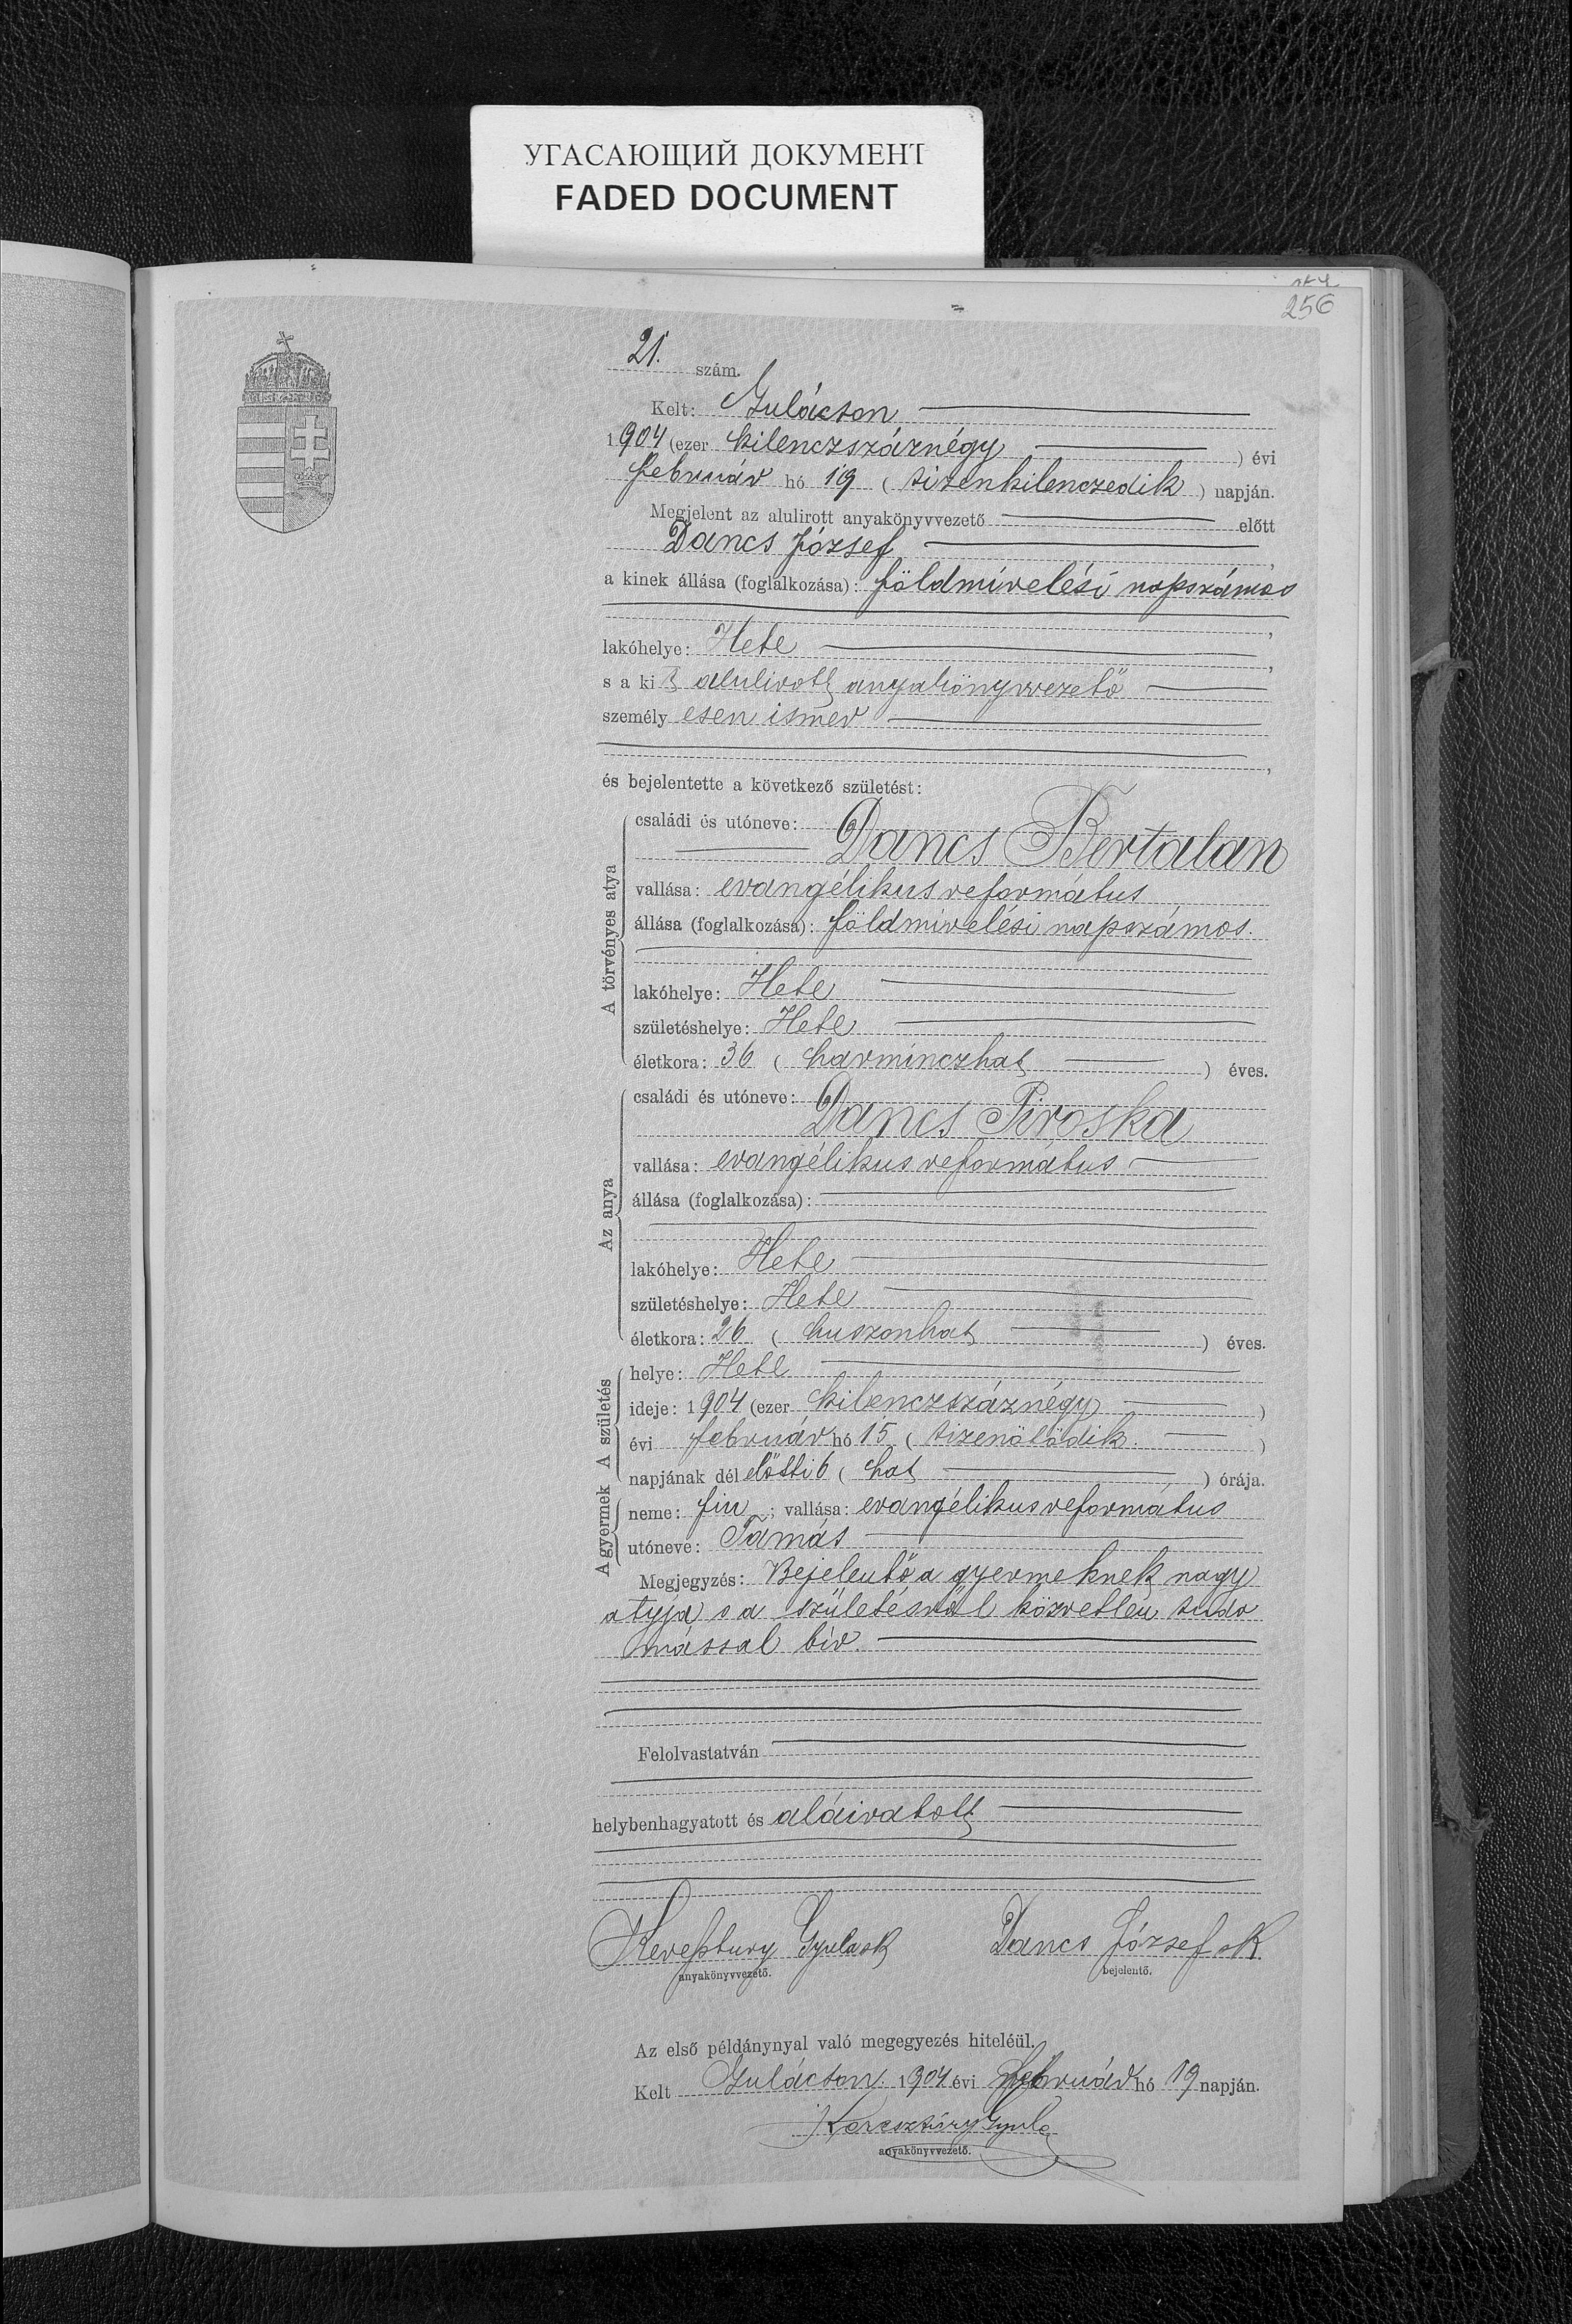 УГАСАЮЩИЙ ДОКУМЕНТ
FADED DOCUMENT
256
21. szám.
Kelt: Gulácson
1904 (ezer kilenczszáznégy ) évi
február hó 19 ( tizenkilenczedik ) napján.
Megjelent az alulirott anyakönyvvezető előtt
Dancs József,
a kinek állása (foglalkozása): földmívelési napszámos
,
lakóhelye: Hete ,
s a kit alulirott anyakönyvvezető
személyesen ismer
,
és bejelentette a következő születést:
A törvényes atya
családi és utóneve: Dancs Bertalan
vallása: evangélikus református
állása (foglalkozása): földmivelési napszámos.
lakóhelye: Hete
születéshelye: Hete
életkora: 36 ( harminczhat ) éves.
Az anya
családi és utóneve: Dancs Piroska
vallása: evangélikus református
állása (foglalkozása):
lakóhelye: Hete
születéshelye: Hete
életkora: 26 ( huszonhat ) éves.
A születés
helye: Hete
ideje: 1904 (ezer kilenczszáznégy )
évi február hó 15 ( tizenötödik. )
napjának dél előtti 6 ( hat ) órája.
A gyermek
neme: fiu ; vallása: evangélikus református
utóneve: Tamás
Megjegyzés: Bejelentő a gyermeknek nagy
atyja s a születésről közvetlen tudo
mással bir.
Felolvastatván
helybenhagyatott és aláiratott
Keresztury Gyula sk Dancs József sk
anyakönyvvezető. bejelentő.
Az első példánynyal való megegyezés hiteléül.
Kelt Gulácson. 1904 évi február hó 19 napján.
Keresztúry Gyula
anyakönyvvezető.